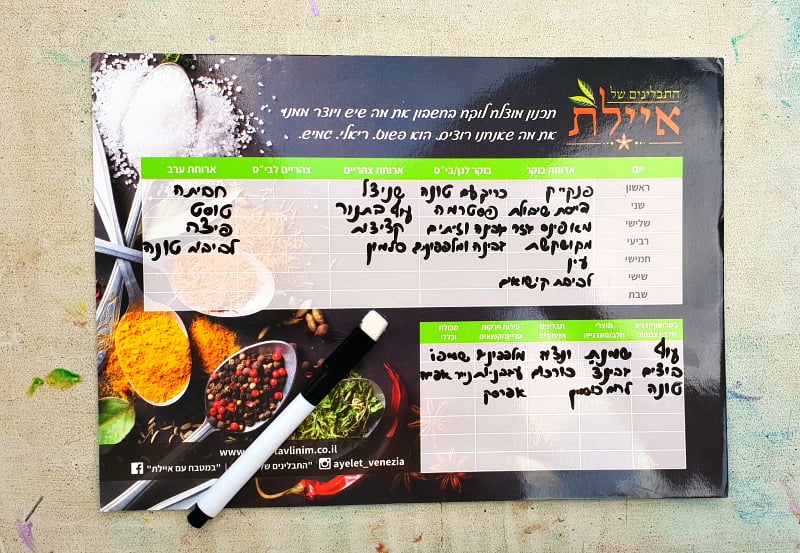 התבלינים של
איילת
תכנון מוצלח לוקח בחשבון את מה שיש ויוצר ממנו
את מה שאנחנו רוצים. הוא פשוט. ריאלי. גמיש.
יום ארוחת בוקר בוקר לגן/בי"ס ארוחת צהריים צהריים לבי"ס ארוחת ערב
ראשון פנקייק כריך עם טונה שניצל חביתה
שני דייסת שיבולת פסטרמה עוף בתנור טוסט
שלישי מאפינס גזר גבינה וזיתים קציצות פיצה
רביעי מקושקשת גבינה ומלפפונים סלמון לביבות טונה
חמישי עין
שישי לביבות קישואים
שבת
בשר/עוף/דגים חלבון צמחוני מוצרי חלב/מעדנייה תבלינים ושימורים פירות וירקות טריים/קפואים מכולת וכללי
עוף שמנת וניל מלפפונים שמפו
ביצים כורכום נייר אפייה
טונה לחם כוסמין אפרסק
www. tavlinim.co.il
"במטבח עם איילת" | "התבלינים של ayelet_venezia